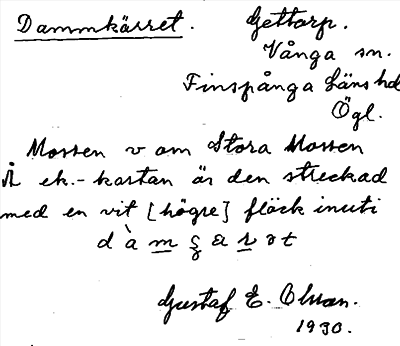 Dammkärret.
Gettorp.
Vånga sn.
Finspånga läns hd
Ögl.
Mossen v om Stora Mossen
På ek.-kartan är den streckad
med en vit [högre] fläck inuti
Gustaf E. Olsson.
1930.